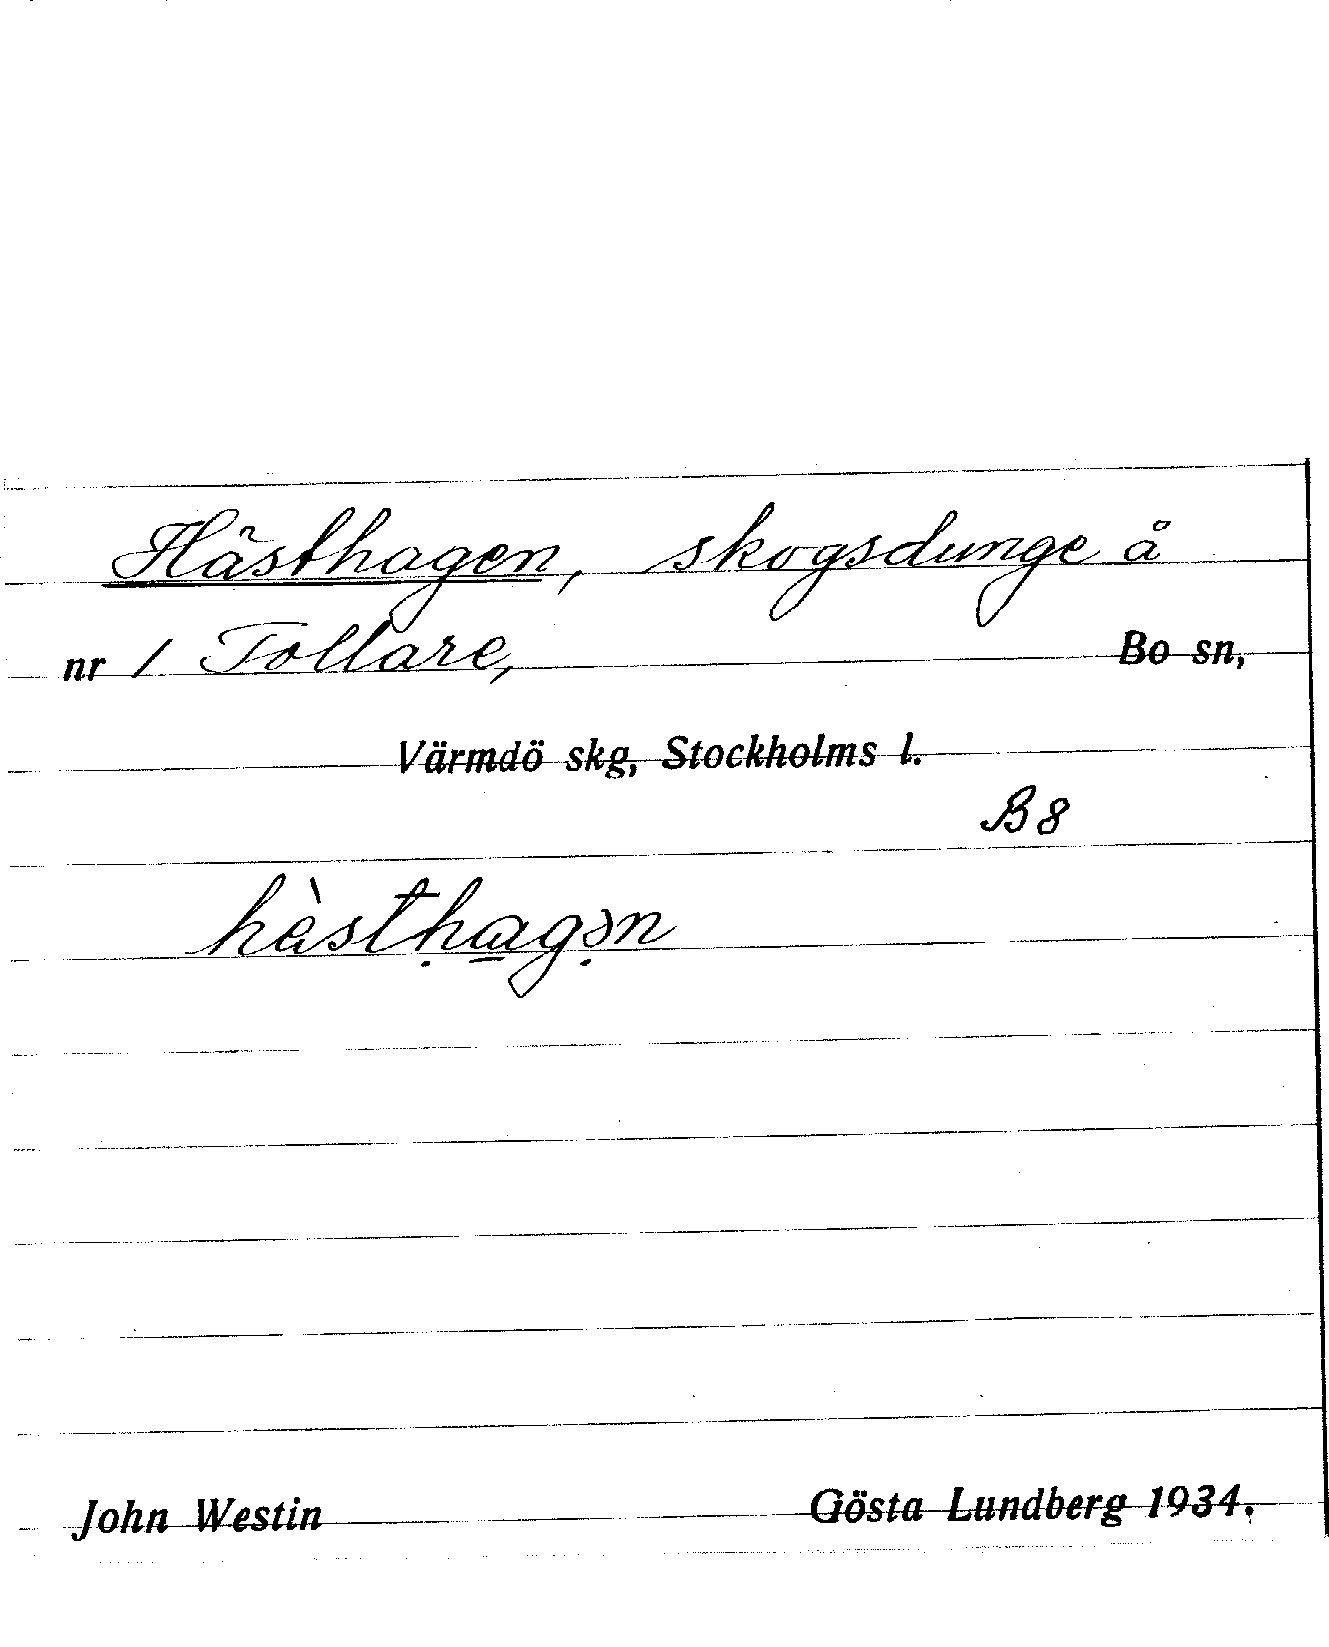 Hästhagen, skogsdunge å
nr 1 Tollare, Bo sn,
Värmdö skg, Stockholms l.
B8
hàstḥa̲gə̣n
John Westin Gösta Lundberg 1934.